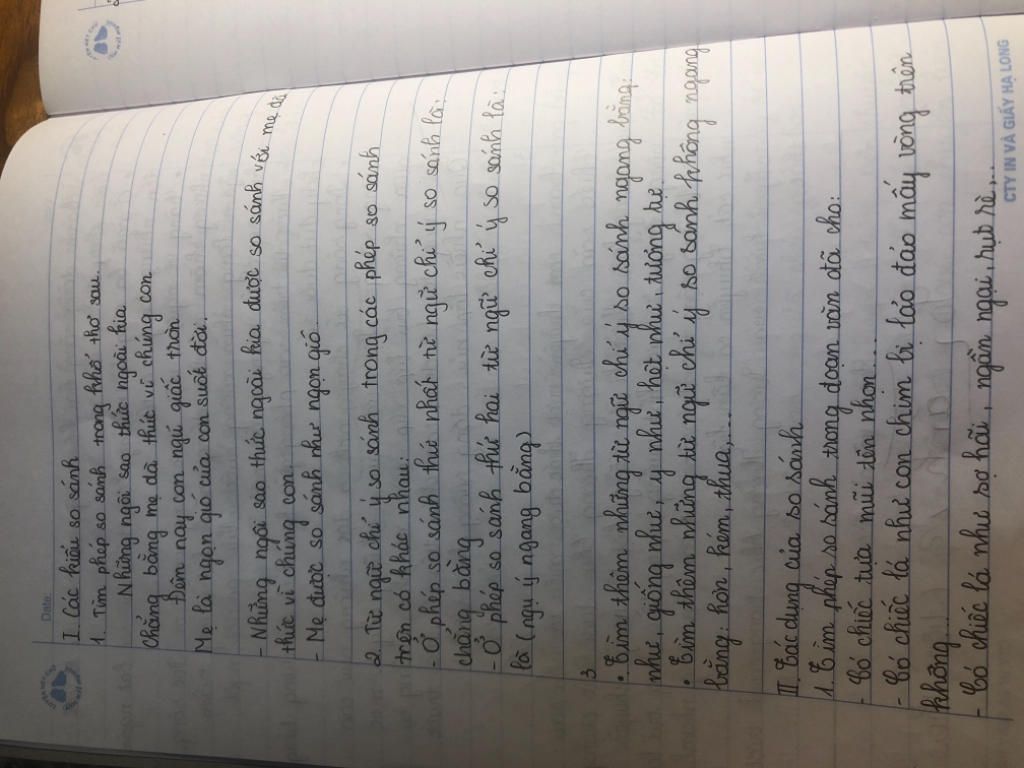 Date:
I. Các kiểu so sánh
1. Tìm phép so sánh trong khổ thơ sau.
Những ngôi sao thức ngoài kia
Chẳng bằng mẹ đã thức vì chúng con
Đêm nay con ngủ giấc tròn
Mẹ là ngọn gió của con suốt đời.
- Những ngôi sao thức ngoài kia được so sánh với mẹ đã
thức vì chúng con
- Mẹ được so sánh như ngọn gió
2. Từ ngữ chỉ ý so sánh trong các phép so sánh
trên có khác nhau:
- Ở phép so sánh thứ nhất từ ngữ chỉ ý so sánh là:
chẳng bằng
- Ở phép so sánh thứ hai từ ngữ chỉ ý so sánh là:
là (ngụ ý ngang bằng)
3
• Tìm thêm những từ ngữ chỉ ý so sánh ngang bằng:
như, giống như, y như, hệt như, tương tự
• Tìm thêm những từ ngữ chỉ ý so sánh không ngang
bằng: hơn, kém, thua,...
II. Tác dụng của so sánh
1. Tìm phép so sánh trong đoạn văn đã cho:
- Có chiếc tựa mũi tên nhọn...
- Có chiếc lá như con chim bị lảo đảo mấy vòng trên
không...
- Có chiếc lá như sợ hãi, ngần ngại, rụt rè,...
CTY IN VÀ GIẤY HẠ LONG